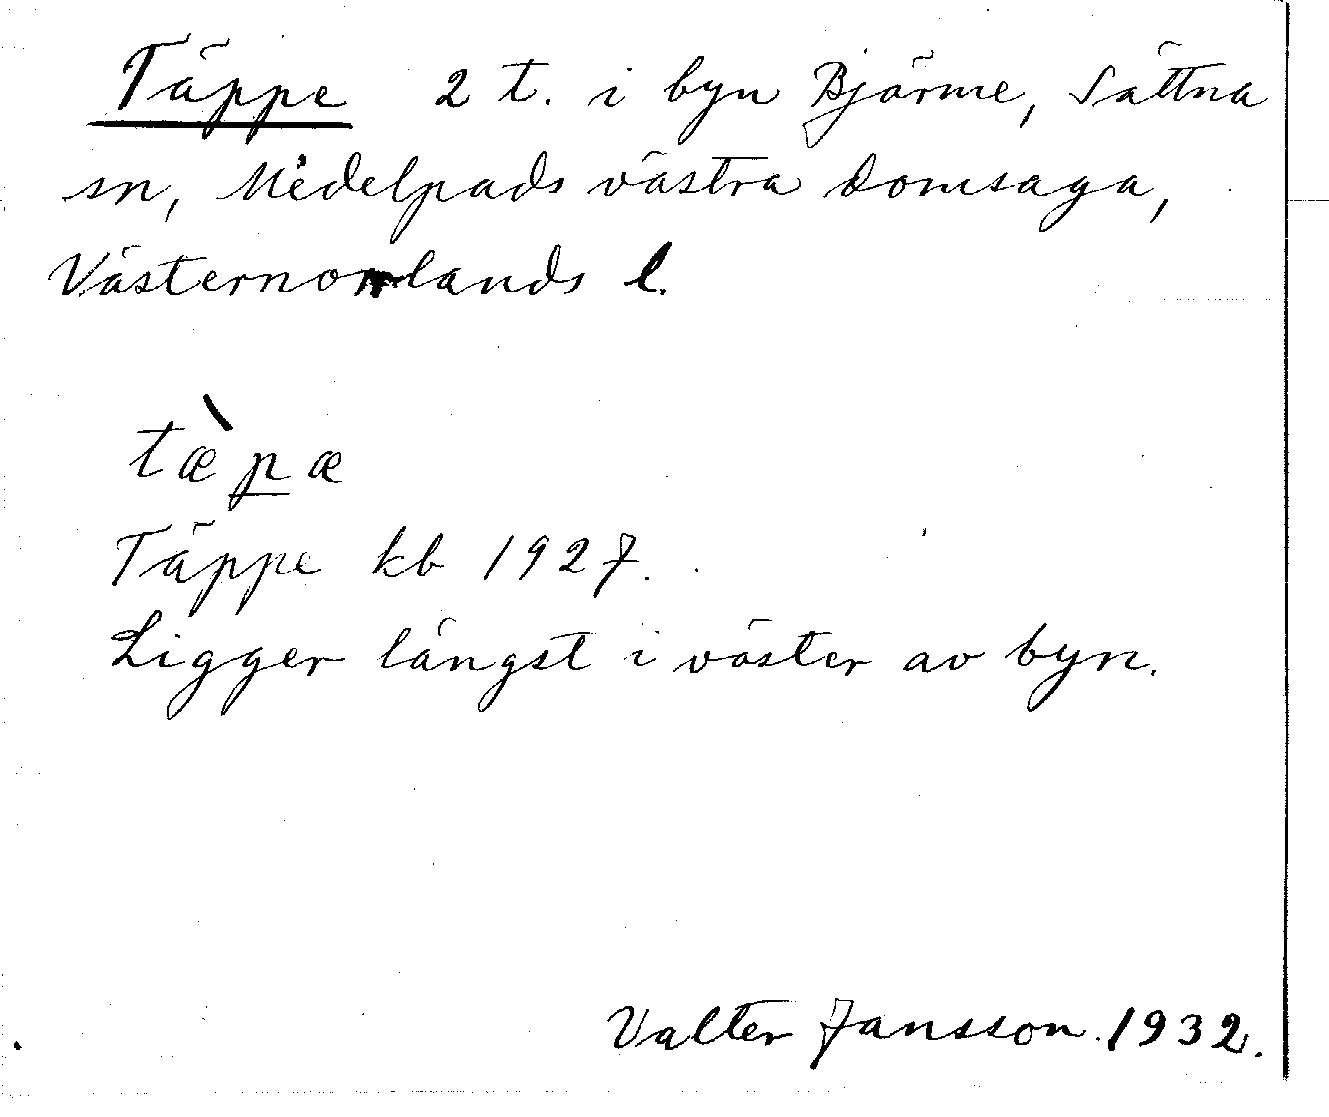 Täppe 2 t. i byn Bjärme, Sättna
sn, Medelpads västra domsaga,
Västernorrlands l.
tæ̀pæ
Täppe kb 1927.
Ligger längst i väster av byn.
Valter Jansson. 1932.